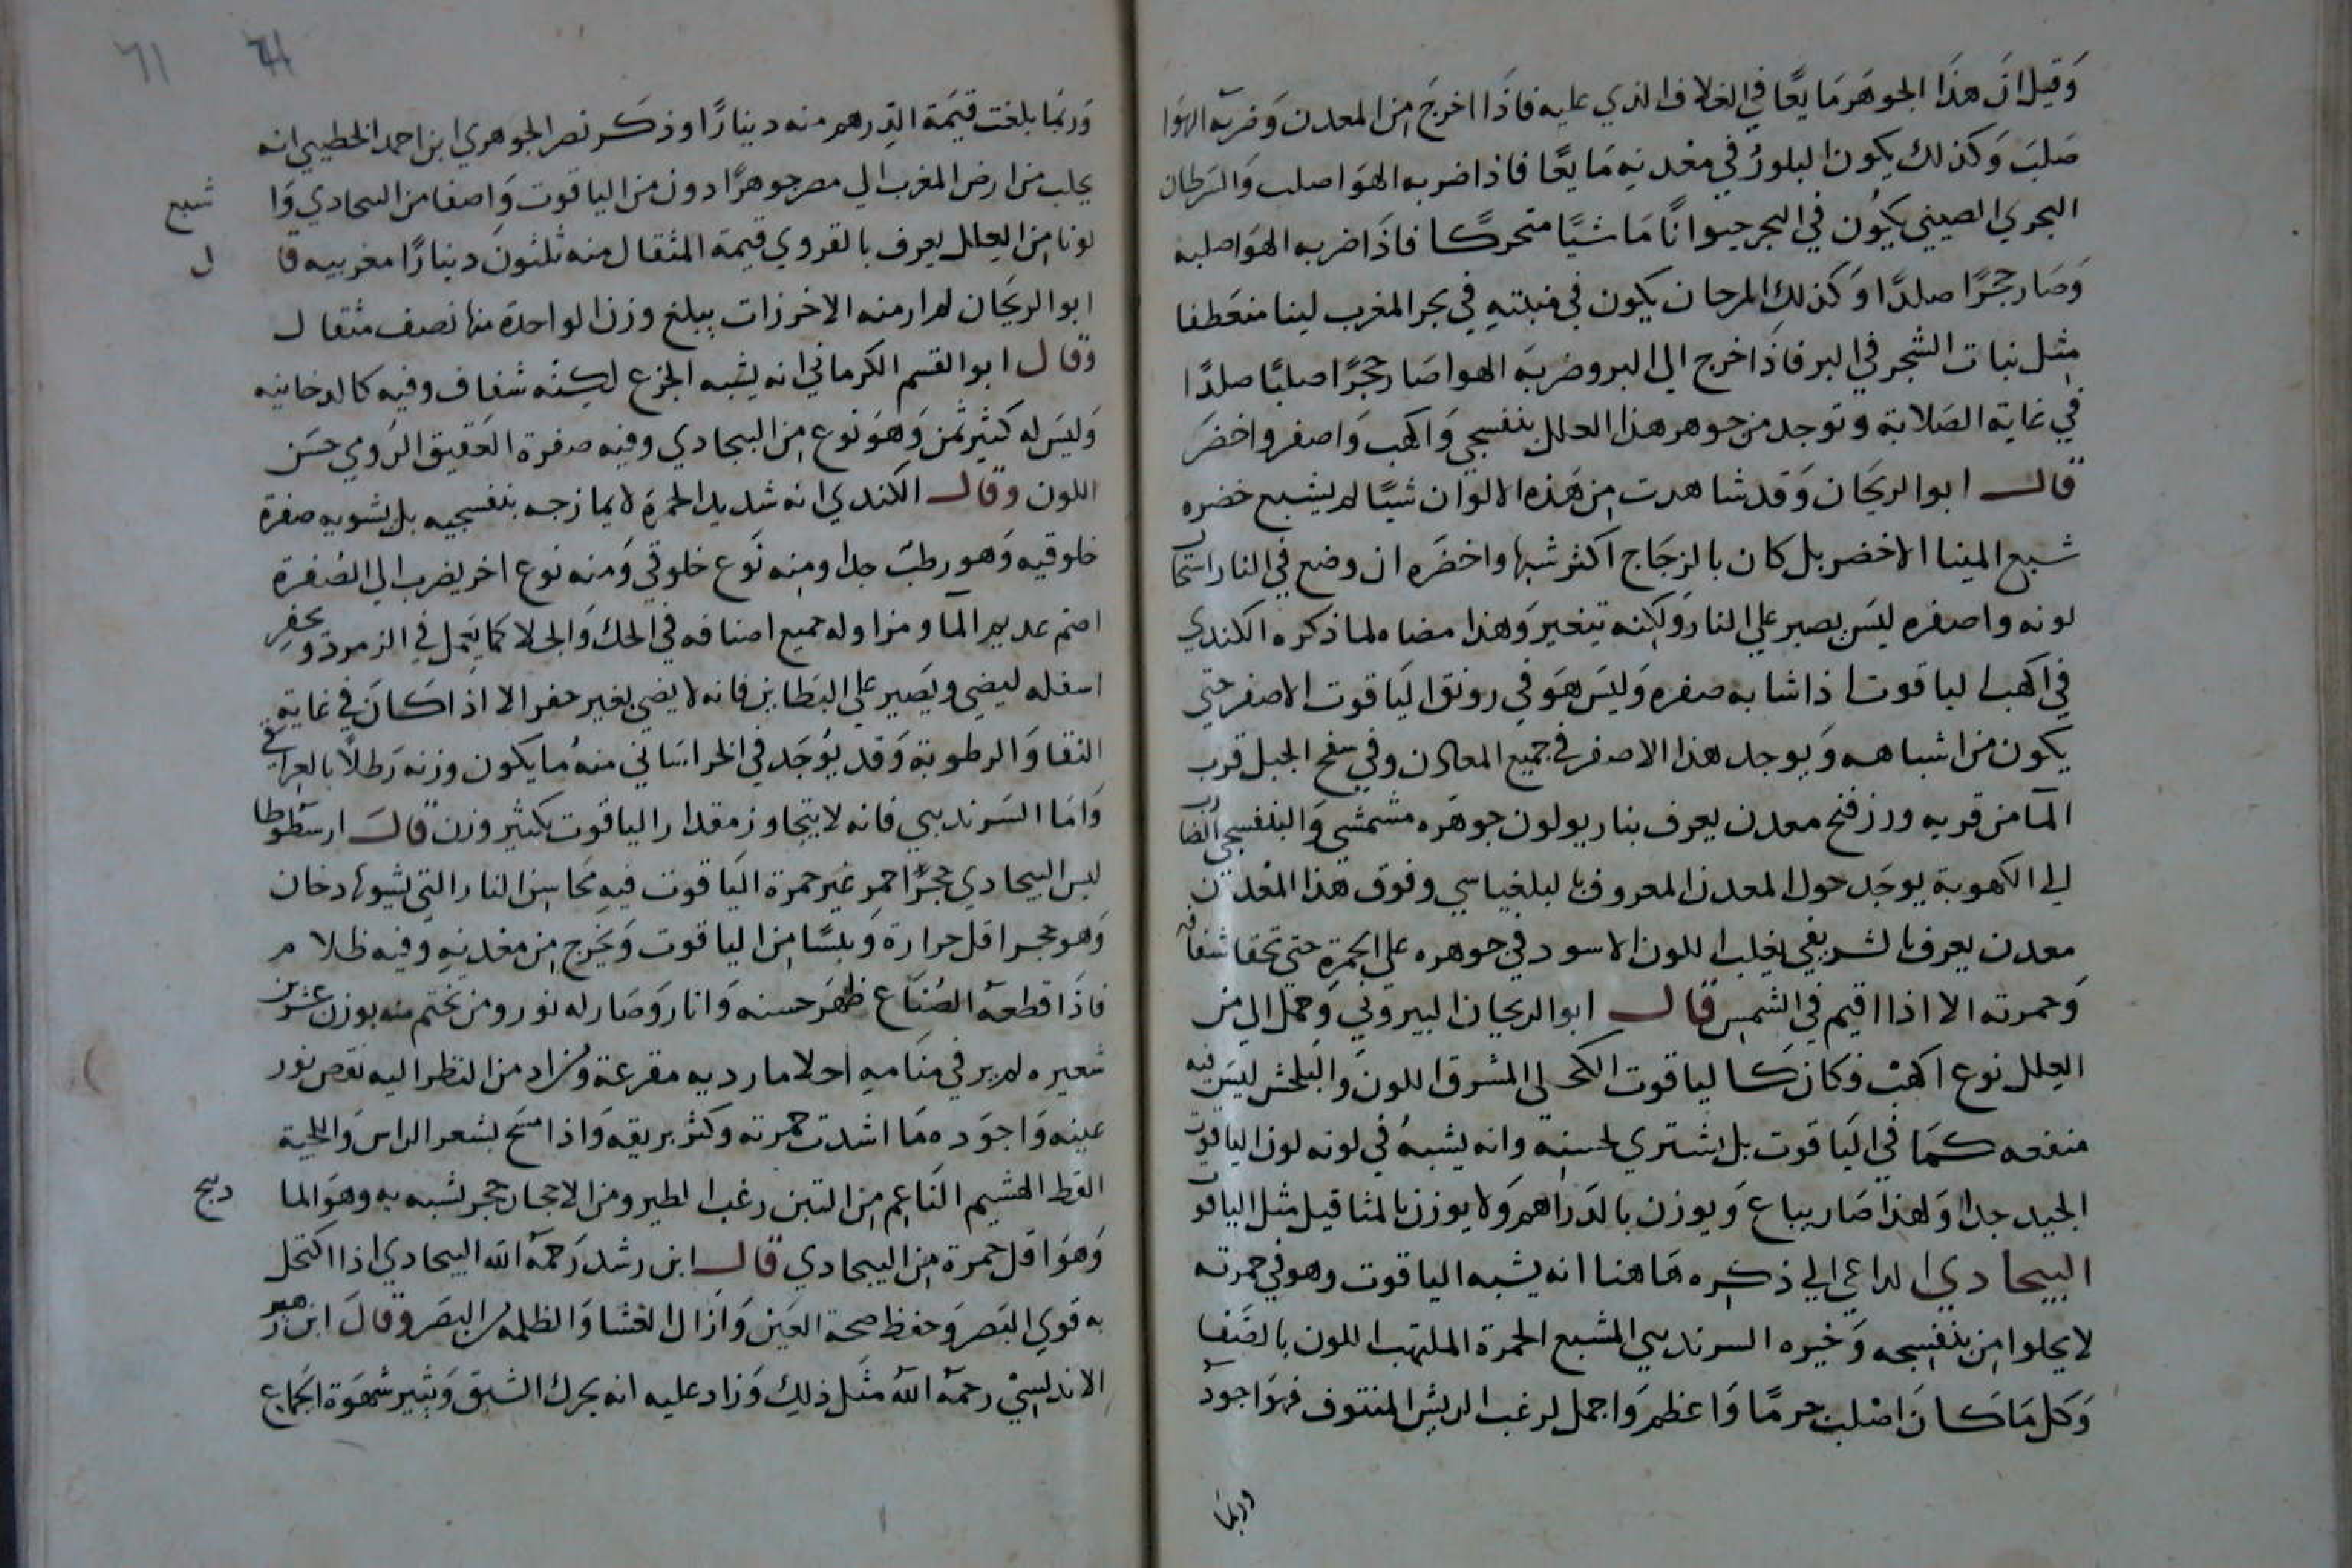 وَقيل انَ هذَا الجوهَر مَايعًا في الغلاف الذي عليه فاذَا اخرجَ مِن المعدن وَضربه الهوَا
صَلبَ وَكذلك يكون البلورُ في معْدنهِ مَايعًا فاذا ضربه الهوَا صلب وَالسَرطان
البحري الصيني يكوُن في البحر حيوانًا مَاشيًا متحركًا فاذَا ضربه الهوَا صلبه
وَصَار حجرًا صلدًا وَكذلك المرجان يكون في منبتهِ في بحر المغرب لينا منعَطفا
مِثل نبات الشجر في البر فاذَا خرج الي البر وضربَه الهوا صَار حجرًا صلبًا صلدًا
في غاية الصَلابة وتوجد من جوهر هذا العلل بنفسجي وَاكهب وَاصفر واخضرَ
قال ابوا الريحَان وَقد شاهدت مِن هَذه الالوان شيًا لم يشبع خضره
شبع المينا الاخضر بل كان بالزجَاج اكثر شبها واخضَره ان وضع في النار استحال
لونه واصفره ليسَ يصبر علي النار وَلكِنه يتغير وَهذا مضاه لما ذكره الكندي
في اكهب الياقوت اذا شابه صفره وَليسَ هوَ في رونق اليَاقوت الاصفر حتي
يكون من اشباهه وَيوجد هذا الاصفر في جميع المعادن وفي سفح الجبل قرب
المآ من قريه ورزفنج معدن يعرف بناريولون جوهَره مشمشي وَالبنفسجي الضارب
الي الكهوبة يوجَد حول المعدن المعروف بالبلغياسي وفوق هذا المعْدن
معدن يعرف بالشريفي يغلب اللون الاسود في جوهره علي الحمرَةِ حتي تخفا شفافه
وَحمرته الا اذا اقيم في الشمس قال ابوا الريحان البيروني وَحمل الي من
العِلل نوع اكهبْ فكان كالياقوت الكحلي المشرق اللون وَالبلخش ليسَ فيه
منفعه كمَا في اليَاقوت بل يشتري لحسنِه وانه يشبهُ في لونه لون الياقوت
الجيد جدا وَلهذا صَار يباع وَيوزن بالدَراهم وَلا يوزن بالمثاقيل مثل الياقوت
البيجادي الداعي الي ذكره هَاهنا انه يشبه الياقوت وهو في حمرته
لا يحلوا مِن بنفسجيه وَخيره السرنديبي المشبع الحمرة الملتهب اللون بالصَفا
وَكل مَا كانَ اصْلب جرمًا وَاعظم وَاجمل لزغب الريش المنتوف فهوَ اجود
وربما
وَربمَا بلغت قيمَة الدِرهم منه دينارًا وذكر نصر الجوهري ابن احمد الخطيبي انه
يجلب من ارض المغرب الي مصر جوهرًا دون من الياقوت وَاصفا من البيجادي وَا شبع
لونا مِن العلل يعرف بالقروي قيمة المثقال منه ثلثونَ دينارًا مغربيه قا ل
ابوا الريحَان لم ار منه الا خرزات يبلغ وزن الواحدة منها نصف مثقال
وَقال ابوا القسم الكرماني انه يشبه الجزع لكِنّه شفاف وفيه كالدخانيه
وَليسَ له كثير ثمن وَهوَ نوع مِن البيجادي وفيه صفرة العقيق الرَومي حسَن
اللون وَقال الكندي انه شديد الحمرةِ لا يمازجه بنفسجيه بل يشوبه صفرة
خلوقيه وَهو رطبْ جدا ومنِه نَوع خلوقي وَمنه نوع اخر يضرب الي الصُفرة
اصم عديم المآ ومزاوله جميع اصنافه في الحك وَالجلا كمَا يعمَل في الزمرد ويحفر
اسفله ليضي ويَصير علي البَطاين فانه لا يضي بغير حفر الا اذا كانَ في غاية
النقا وَالرطوبة وَقد يوُجَد في الخراسَاني منهُ ما يكون وزنه رَطلًا بالعراقي
وَامَا السَرنديبي فانه لا يتجاوز مقدار الياقوت بكثير وزن قالَ ارسطوطا
ليس البيجادي حجرًا احمر غير حمرة اليَاقوت فيهِ مَحاسِن النار التي يشوبها دخان
وَهو حجر اقل حرارة وَيبسًا مِن الياقوت وَيخرج مِن معْدنهِ وَفيه ظلا م
فاذَا قطعه الصُنّاع ظهَر حسنه وَانار وَصَار له نور ومن تختم منه بوزن عشرين
شعيره لم ير في منَامهِ احلاما رديه مفزعة ومن زاد من النظر اليه نقص نور
عينه وَاجوَده مَا اشدت حمرته وَكثر بريقه وَاذا مسَح بشعر الراس وَاللحية
القط الهشيم النَاعِم مِن التبن زغب الطير ومن الاحجار حجر يشبه به وهوَ الما ذبج
وَهوَ اقل حمرة مِن البيجادي قال ابن رشد رَحمهُ الله البيجادي اذا اكتحل
به قوي البَصر وَحفظ صحة العَين وَازَال الغشا وَالظلمه من البصَر وَقالَ ابن زهر
الاندلسيْ رحمهُ اللهُ مثَل ذلكِ وَزاد عليه انه يحرك الشبق وَيثير شهوَة الجماع